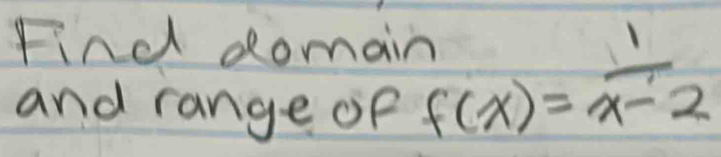 Find domain
and range of f(x) = 1/(x-2)